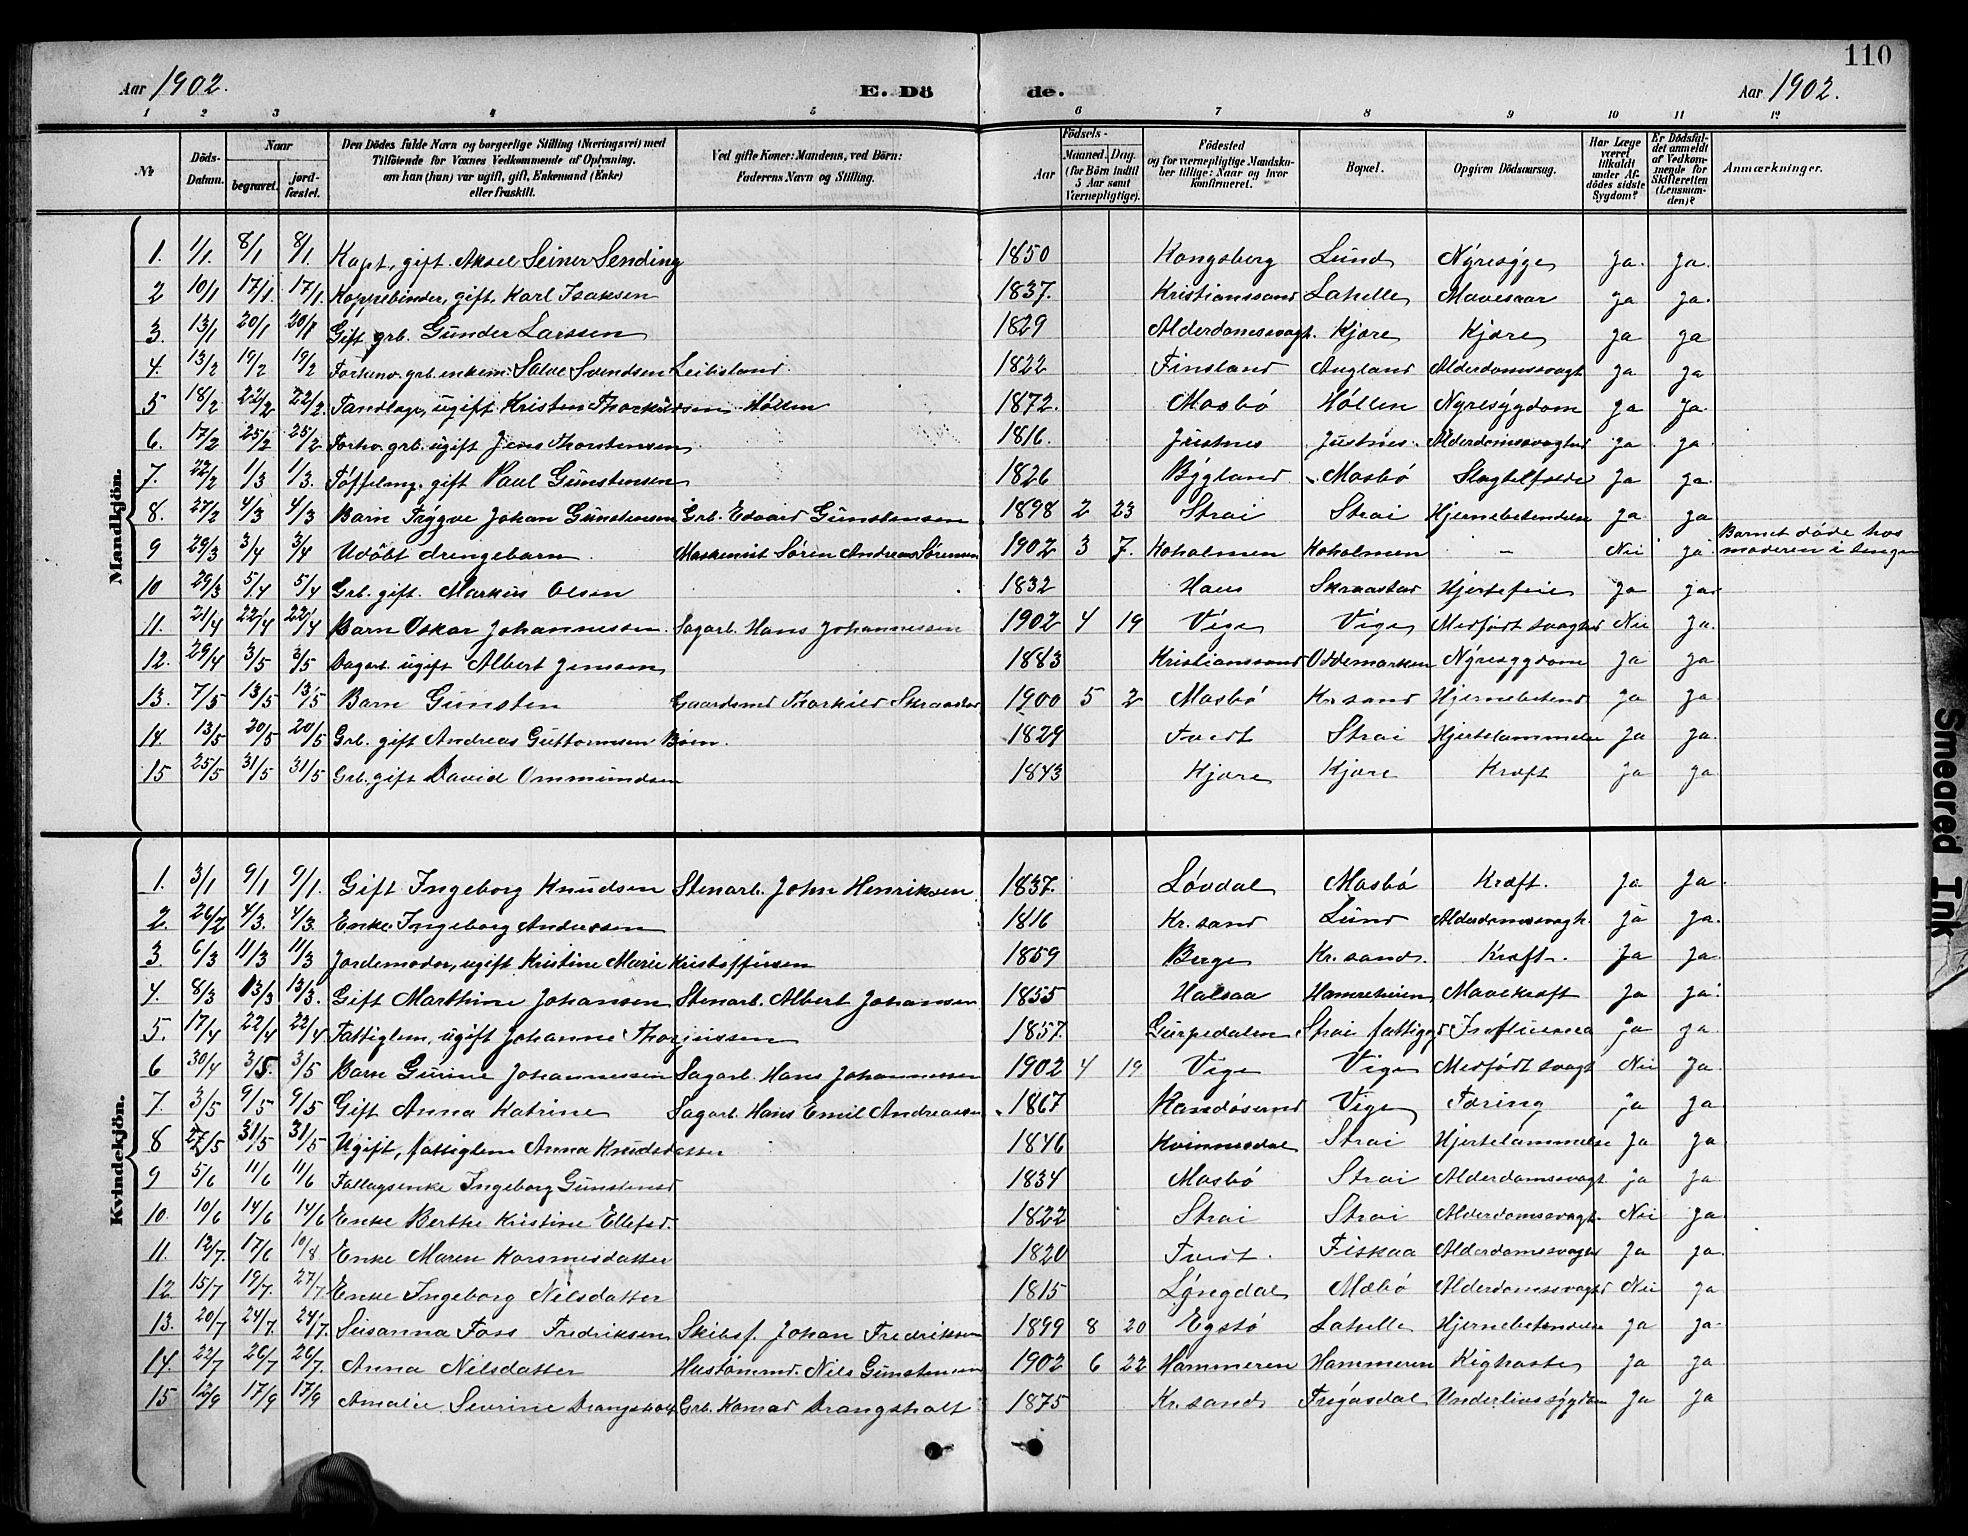 110
Aar 1902. E. Dö de. Aar 1902.
1 2 3 4 5 6 7 8 9 10 11 12
№ Döds-Datum. Naar begravet. jordfæstet. Den Dödes fulde Navn og borgerlige Stilling (Næringsvei) med Tilföiende for Voxnes Vedkommende af Oplysning, om han (hun) var ugift, gift, Enkemand (Enke) eller fraskilt. Ved gifte Koner: Mandens, ved Börn: Faderens Navn og Stilling. Födsels- Aar Maaned. Dag. (for Börn indtil 5 Aar samt Værnepligtige). Födested og for værnepligtige Mandskaber tillige: Naar og hvor konfirmeret. Bopæl. Opgiven Dödsaarsag. Har Læge været tilkaldt under Afdödes sidste Sygdom? Er Dödsfaldet anmeldt af Vedkommende for Skifteretten (Lensmanden)? Anmærkninger.
Mandkjön.
1. 1/1. 8/1 8/1. Kapt., gift. Aksel Seiner Sending 1850 Kongsberg Lund Nyresyge ja. ja.
2 10/1 17/1. 17/1. Koppebinder, gift, Karl Isaksen 1837. Kristianssand Lahelle Mavesaar ja ja.
3. 13/1 20/1 20/1 Gift grb. Gunder Larssen 1829 Alderdomssvagt. Kjære Kjære ja ja
4. 13/2 19/2 19/2 Forhenv. grb. enkem. Salve Svendsen Leibisland. 1822 Finsland Augland Alderdomssvagt ja ja
5 18/2 22/2 22/2. Tandlæge, ugift Kristen Thorkildsen Höllen 1872. Mosbö Höllen Nyresygdom ja ja.
6. 17/2 25/2 25/2 Forhv. grb. ugift Jens Thorstensen 1816. Justnes Justnes. Alderdomssvaghed ja ja.
7. 22/2 1/3 1/3. gift Paul Gunstensen 1826 Bygland Mosbö ja ja.
8. 27/2 4/3 4/3 Barn Trygve Johan Gunstensen Grb. Edvard Gunstensen 1898 2 23 Strai Strai Hjernebetendelse ja. ja
9 29/3 3/4 3/4 Udöbt drengebarn. Maskinist Sören Andreas Sörensen 1902 3 7. Koholmen Koholmen - Nei ja Barnet döde hos moderen i sengen
10 29/3 5/4 5/4 Grb. gift. Markus Olsen 1832 Haus Skraastad Hjertefeil ja ja.
11. 21/4 22/4 22/4 Barn Oskar Johannessen. Sagarb. Hans Johannessen 1902 4 19 Vige Vige Medfödt svaghed Nei ja.
12. 29/4 3/5 3/5 Dagarb. ugift Albert Jensen 1883 Kristianssand Oddemarken Nyresygdom ja ja
13. 7/5 13/5 13/5 Barn Gunsten Gaardmd Thorkild Skraastad 1900 5 2 Mosbö Kr.sand Hjernebetend. ja ja.
14. 13/5 20/5 20/5 Grb. gift Andreas Guttormsen Böen. 1829 Tvedt Strai Hjertelammelse ja ja.
15 25/5 31/5 31/5 Grb. gift David Ommundsen 1843 Kjære Kjære Kræft ja ja
Kvindekjön.
1. 3/1 9/1 9/1. Gift Ingeborg Knudsen Stenarb. John Henriksen 1837. Lövdal Mosbö Kræft. ja ja.
2. 26/2 4/3. 4/3. Enke Ingeborg Anderssen 1816 Kr.sand Lund Alderdomssvagh. ja ja.
3. 6/3 11/3 11/3 Jordemoder, ugift Kristine Marie Kristoffersen 1859 Berge Kr.sand. Kræft. ja ja.
4. 8/3 13/3 13/3. Gift Marthine Johansen Stenarb. Albert Johansen 1855 Halsaa Hamreheien Mavekræft ja ja.
5. 17/4 22/4 22/4 Fattiglem, ugift Johanne Thorjussen 1857. Gurpedalen Strai fattigg. Influensa ja ja
6 30/4 3/5. 3/5 Barn Gurine Johannessen Sagarb. Hans Johannessen 1902 4 19 Vige Vige Medfödt svagt Nei ja.
7. 3/5 9/5 9/5 Gift Anna Katrine Sagarb. Hans Emil Andreassen 1867 Randösund Vige Tæring ja ja.
8 27/5 31/5 31/5 Ugift, fattiglem Anna Knudsdatter 1846 Kvinnesdal Strai Hjertelammelse ja ja.
9 5/6 11/6 11/6 Ingeborg Gunstensd 1834 Mosbö Strai Alderdomssvagt ja ja.
10. 10/6 14/6 14/6 Enke Berthe Kristine Ellefsd. 1822 Strai Strai Alderdomssvagt. Nei ja.
11. 12/7. 17/6 10/8 Enke Maren Korsmesdatter 1820 Tvedt. Fiskaa Alderdomssvaghed ja ja.
12. 15/7 19/7. 27/7. Enke Ingeborg Nilsdatter 1815 Löngdal Mosbö Alderdomssvaghed Nei ja
13. 20/7 24/7. 24/7. Susanna Foss Fredriksen Skibsf. Johan Fredriksen 1899 8 20 Egstö Lahelle Hjernebetendelse ja ja.
14. 22/7 26/7 26/7. Anna Nilsdatter Nils Gunstensen 1902 6 22 Hammeren Hammeren Kighoste ja ja.
15 12/9 17/9 17/9 Amalie Sevrine Drangsholt Grb. Konrad Drangsholt 1875 Kr.sand Underlivssygdom ja ja
Smeared Ink